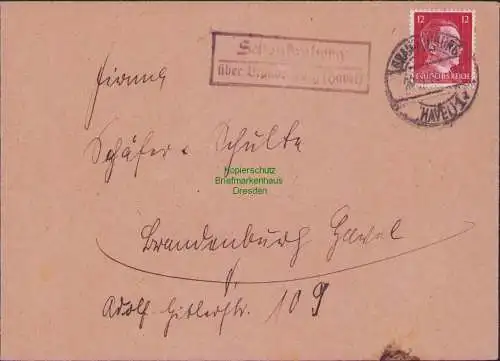 12
DEUTSCHES REICH
über Brandenburg (Havel)
BRANDENBURG
(HAVEL) 1
Firma
Schäfer & Schulte
Kopierschutz
Briefmarkenhaus
Dresden
Brandenburg Havel
Adolf Hitlerstr. 109